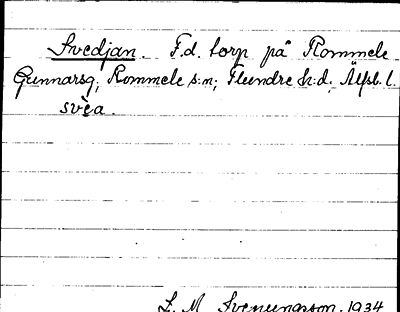 Svedjan. F.d. torp på Rommele
Gunnarsg, Rommele s:n; Flundre h:d, Älfsb. l.
svèa.
L. M. Svenungsson. 1934